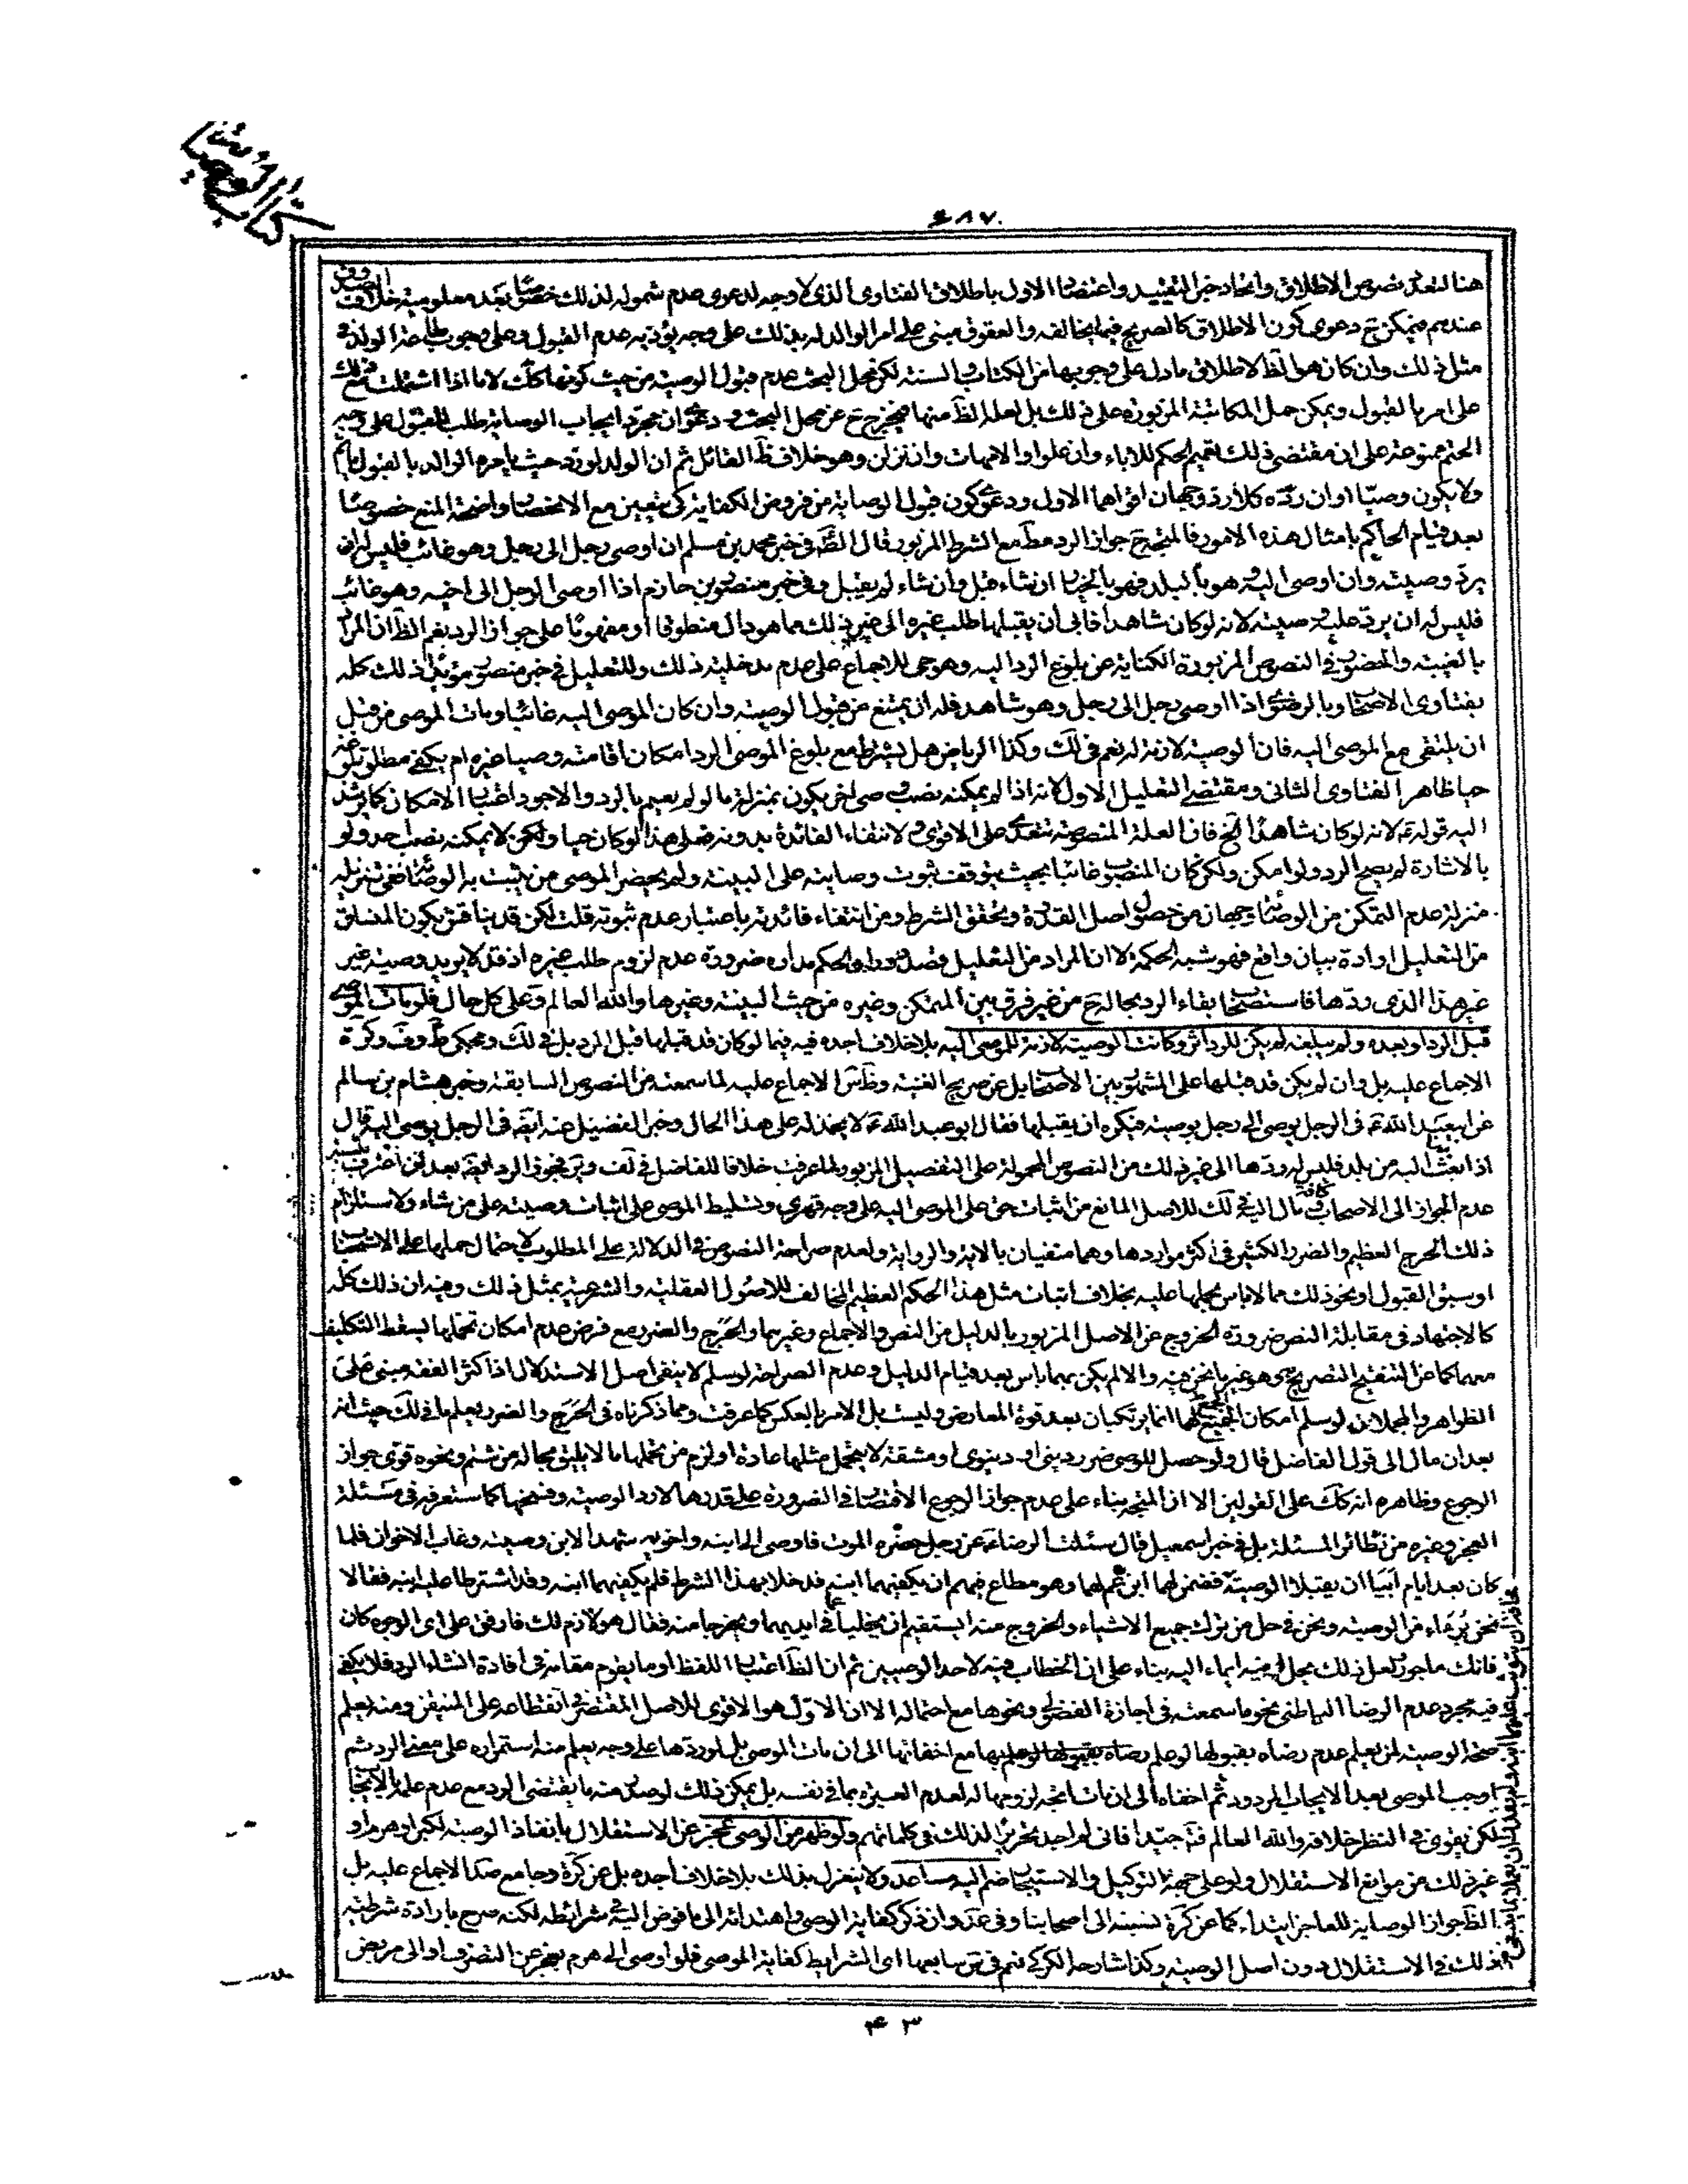 كتاب الوصايا
هنا لتعدد نصوص الاطلاق واتحاد خبر التقييد واعتضاد الاول باطلاق الفتاوى الذى لا وجه لدعوى عدم شموله لذلك خصوصا بعد معلومية خلاف الصدوق
عندهم فيمكن ح دعوى كون الاطلاق كالصريح فيما يخالفه والعقوق مبنى على امر الوالد له بذلك على وجه يؤذيه عدم القبول وعلى وجوب طاعة الولد فى
مثل ذلك وان كان هو الظ لاطلاق ما دل على وجوبها من الكتاب والسنة لكن محل البحث عدم قبول الوصية من حيث كونها كك لا ما اذا اشتملت مع ذلك
على امر بالقبول ويمكن حمل المكاتبة المزبورة على ذلك بل لعله الظ منها فيخرج ح عن محل البحث ودعوى ان مجرد ايجاب الوصاية طلب للقبول على وجه
الحتم ممنوعة على ان مقتضى ذلك تعميم الحكم للاباء وان علوا والامهات وان نزلن وهو خلاف ظ القائل ثم ان الولد لو رد حيث يامره الوالد بالقبول ياثم
ولا يكون وصيّا او ان ردّه كلا رد وجهان اقواهما الاول ودعوى كون قبول الوصاية من فروض الكفاية كى يتعين مع الانحصار واضحة المنع خصوصًا
بعد قيام الحاكم بامثال هذه الامور فالمتجه ح جواز الرد مط مع الشرط المزبور قال الص فى خبر محمد بن مسلم ان اوصى رجل الى رجل وهو غائب فليس له ان
يردّ وصيته وان اوصى اليه وهو بالبلد فهو بالخيار ان شاء قبل وان شاء لم يقبل وفى خبر منصور بن حازم اذا اوصى الرجل الى اخيه وهو غائب
فليس له ان يرد عليه وصيته لانه لو كان شاهدا فابى ان يقبلها طلب غيره الى غير ذلك مما هو دال منطوقا او مفهومًا على جواز الرد نعم الظ ان المراد
بالغيبة والحضور فى النصوص المزبورة الكناية عن بلوغ الرد اليه وهو حى للاجماع على عدم مدخلية ذلك وللتعليل فى خبر منصور مؤيدا ذلك كله
بفتاوى الاصحاب وبالرضوى اذا اوصى رجل الى رجل وهو شاهد فله ان يمتنع من قبول الوصية وان كان الموصى اليه غائبا ومات الموصى من قبل
ان يلتقى مع الموصى اليه فان الوصية لازمة له نعم فى لك وكذا الرياض هل يشترط مع بلوغ الموصى الرد امكان اقامته وصيا غيره ام يكفى مطلق بلوغه
حيا ظاهر الفتاوى الثانى ومقتضى التعليل الاول لانه اذا لم يمكنه نصب وصى اخر يكون بمنزلة ما لو لم يعلم بالرد والاجود اعتبار الامكان كما يرشد
اليه قوله عم لانه لو كان شاهدا الخ فان العلة المنصوصة تتعدى على الاقوى ولانتفاء الفائدة بدونه فعلى هذا لو كان حيا ولكن لا يمكنه نصب احد ولو
بالاشارة لم يصح الرد ولو امكن ولكن كان المنصوب غائبا بحيث يتوقف ثبوت وصايته على البينة ولم يحضر الموصى من يثبت به الوصاية ففى تنزيله
منزلة عدم التمكن من الوصاية وجهان من حصول اصل القدرة وتحقق الشرط ومن انتفاء فائدته باعتبار عدم ثبوته قلت لكن قد يناقش بكون المنساق
من التعليل ارادة بيان واقع فهو شبه الحكمة لا ان المراد من التعليل فصل دوران الحكم مداره ضرورة عدم لزوم طلب غيره اذ قد لا يريد وصية غير
غير هذا الذى ردّها فاستصحاب بقاء الرد بحاله ح من غير فرق بين المتمكن وغيره من حيث البينة وغيرها والله العالم وعلى كل حال فلو مات الموصى
قبل الرد او بعده ولم يبلغه لم يكن للرد اثر وكانت الوصية لازمة للموصى اليه بلا خلاف اجده فيه فيما لو كان قد قبلها قبل الرد بل فى لك ومحكى ط وف وكرة
الاجماع عليه بل وان لم يكن قد قبلها على المشهور بين الاصحاب بل عن صريح الغنية وظ س الاجماع عليه لما سمعته من النصوص السابقة وخبر هشام بن سالم
عن ابيعبد الله عم فى الرجل يوصى الى رجل بوصيته فيكره ان يقبلها فقال ابو عبد الله عم لا يخذله على هذا الحال وخبر الفضيل عنه ايضا فى الرجل يوصى اليه قال
اذا بعث اليه بها من بلد فليس له ردّها الى غير ذلك من النصوص المحمولة على التفصيل المزبور لما عرفت خلافا للفاضل فى لف وير فجوز الرد ايضا بعد ان اعترف بنسبة
عدم الجواز الى الاصحاب كافة ومال اليه فى لك للاصل المانع من اثبات حق على الموصى اليه على وجه قهرى وتسليط الموصى على اثبات وصيته على من شاء ولاستلزام
ذلك الحرج العظيم والضرر الكثير فى اكثر مواردها وهما منفيان بالاية والرواية ولعدم صراحة النصوص فى الدلالة على المطلوب لاحتمال حملها على الاستحباب
او سبق القبول او نحو ذلك مما لا باس بحملها عليه بخلاف اثبات مثل هذا الحكم العظيم المخالف للاصول العقلية والشرعية بمثل ذلك وفيه ان ذلك كله
كالاجتهاد فى مقابلة النص ضرورة الخروج عن الاصل المزبور بالدليل من النص والاجماع وغيرهما والحرج والضرر مع فرض عدم امكان تحملها يسقط التكليف
معهما كما عن التنقيح التصريح به وهو غير ما نحن فيه والا لم يكن بهما باس بعد قيام الدليل وعدم الصراحة لو سلم لا ينفى اصل الاستدلال اذ اكثر الفقه مبنى على
الظواهر والمحملان لو سلم امكان الجميع كلها انما يرتكبان بعد قوة المعارض وليست بل الامر بالعكس كما عرفت ومما ذكرناه فى الحرج والضرر يعلم ما فى لك حيث انه
بعد ان مال الى قول الفاضل قال ولو حصل للوصى ضرر دينى او دينوى او مشقة لا يتحمل مثلها عادة او لزم من تحملها ما لا يليق بحاله من شتم ونحوه قوى جواز
الرجوع وظاهره انه كك على القولين الا ان المتجه بناء على عدم جواز الرجوع الاقتصار فى الضرورة على قدرها لا رد الوصية وفسخها كما ستعرفه فى مسئلة
العجز وغيره من نظائر المسئلة بل فى خبر اسمعيل قال سئلت الرضا عم عن رجل حضره الموت فاوصى الى ابنه واخويه شهد الابن وصيته وغاب الاخوان فلما
كان بعد ايام ابيا ان يقبلا الوصية مخافة ان يتوثب عليهما ابنه ولم يقدرا ان يعملا بما ينبغى فضمن لهما ابن عم لهما وهو مطاع فيهم ان يكفيهما ابنه فدخلا بهذا الشرط فلم يكفهما ابنه وقد اشترطا عليه ابنه فقالا
نحن نبرء من الوصية ونحن فى حل من ترك جميع الاشياء والخروج منه ايستقيم ان يخليا عما فى ايديهما ويخرجا منه فقال هو لازم لك فارفق على اى الوجوه كان
فانك ماجور لعل ذلك يحل به وفيه ايماء اليه بناء على ان الخطاب فيه لاحد الوصيين ثم ان الظ اعتبار اللفظ او ما يقوم مقامه فى افادة انشاء الرد فلا يكفى
فيه مجرد عدم الرضا الباطنى نحو ما سمعته فى اجازة الفضولى ونحوها مع احتماله الا ان الاول هو الاقوى للاصل المقتضى انقطاعه على المتيقن ومنه يعلم
صحة الوصية لمن يعلم عدم رضاه بقبولها لو علم بها مع اخفائها الى ان مات الموصى بل لو ردّها على وجه يعلم منه استمراره على معنى الرد ثم
اوجب الموصى بعد الايجاب المردود ثم اخفاه الى ان مات اتجه لزومها له لعدم العبرة بما فى نفسه بل يمكن ذلك لو صدر منه ما يقتضى الرد مع عدم علمه بالايجاب
لكن يقوى فى النظر خلافه والله العالم فت جيّدا فانى لم اجد تحريرا لذلك فى كلماتهم ولو ظهر من الوصى عجز عن الاستقلال بانفاذ الوصية لكبر او هرم او
غير ذلك من موانع الاستقلال ولو على جهة التوكيل والاستيجار ضم اليه مساعد ولا ينعزل بذلك بلا خلاف اجده بل عن كرة وجامع صد الاجماع عليه بل
الظ جواز الوصاية للعاجز ابتداء كما عن كرة نسبته الى اصحابنا وفى عد وان ذكر كفاية الوصى واهتدائه الى ما فوض اليه فى شرائطه لكنه صرح بارادة شرطية
ذلك فى الاستقلال دون اصل الوصية وكذا شارحه الكركى نعم فى س سابعها اى الشرايط كفاية الموصى فلو اوصى الى هرم يعجز عن التصرف او الى مريض
۴۳